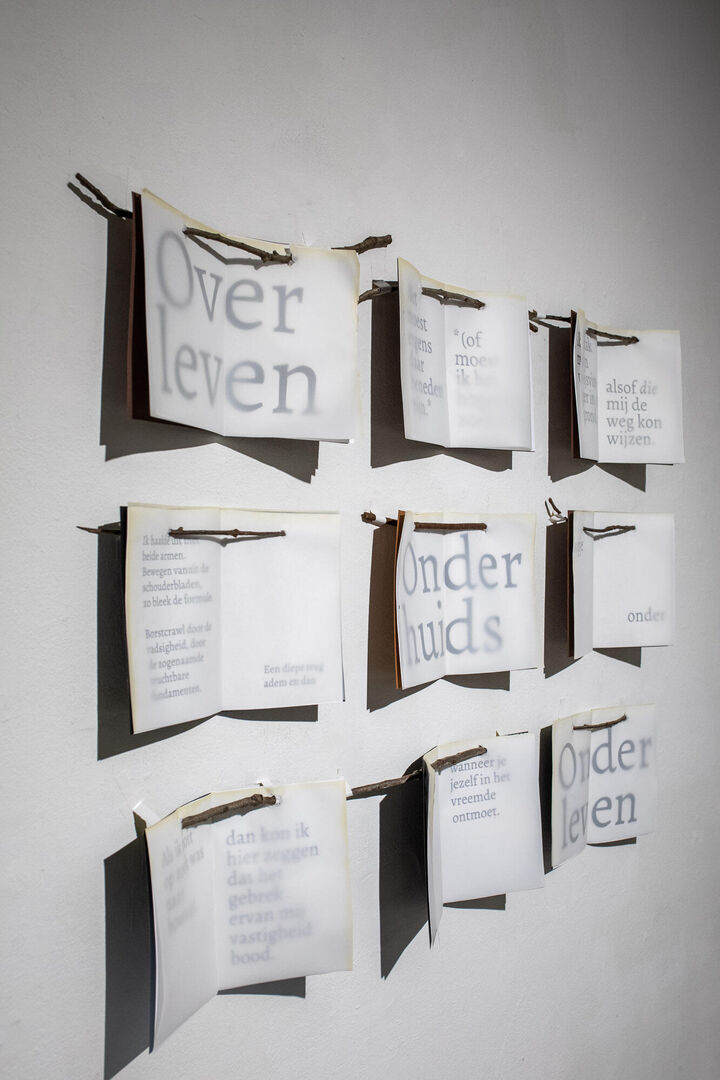 Over
leven
moest
*(of
moest
ik
alsof die
mij de
weg kon
wijzen.
Ik haalde uit met
beide armen.
Bewegen vanuit de
schouderbladen,
zo bleek de formule.
Borstcrawl door de
vadsigheid, door de
zogenaamde
vruchtbare
fundamenten.
Een diepe teug
adem en dan
Onder
huids
onder
Als ik
dan kon ik
hier zeggen
dat het
gebrek
ervan mij
vastigheid
bood.
wanneer je
jezelf in het
vreemde
ontmoet.
Onder
leven